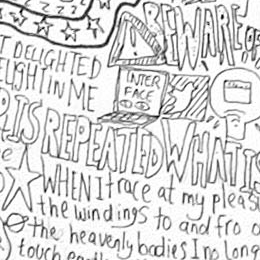 BEWARE OF
T DELIGHTED
ELIGHT IN ME
INTER
FACE
D IS REPEATED WHAT IS
WHEN I trace at my pleas
the windings to and fro o
the heavenly bodies I no long
touch